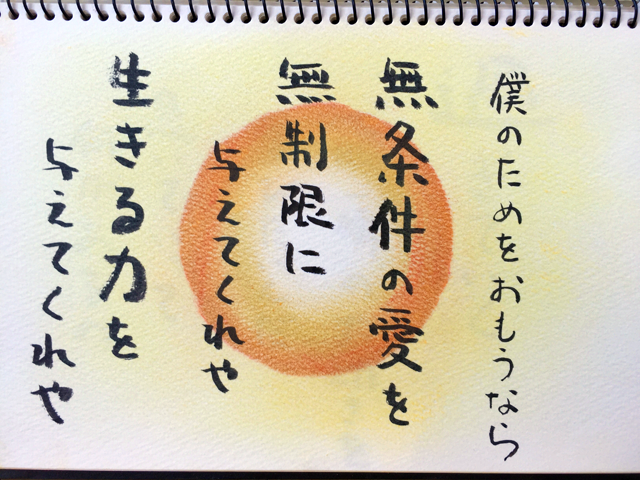 僕のためをおもうなら
無条件の愛を
無制限に
与えてくれや
生きる力を
与えてくれや